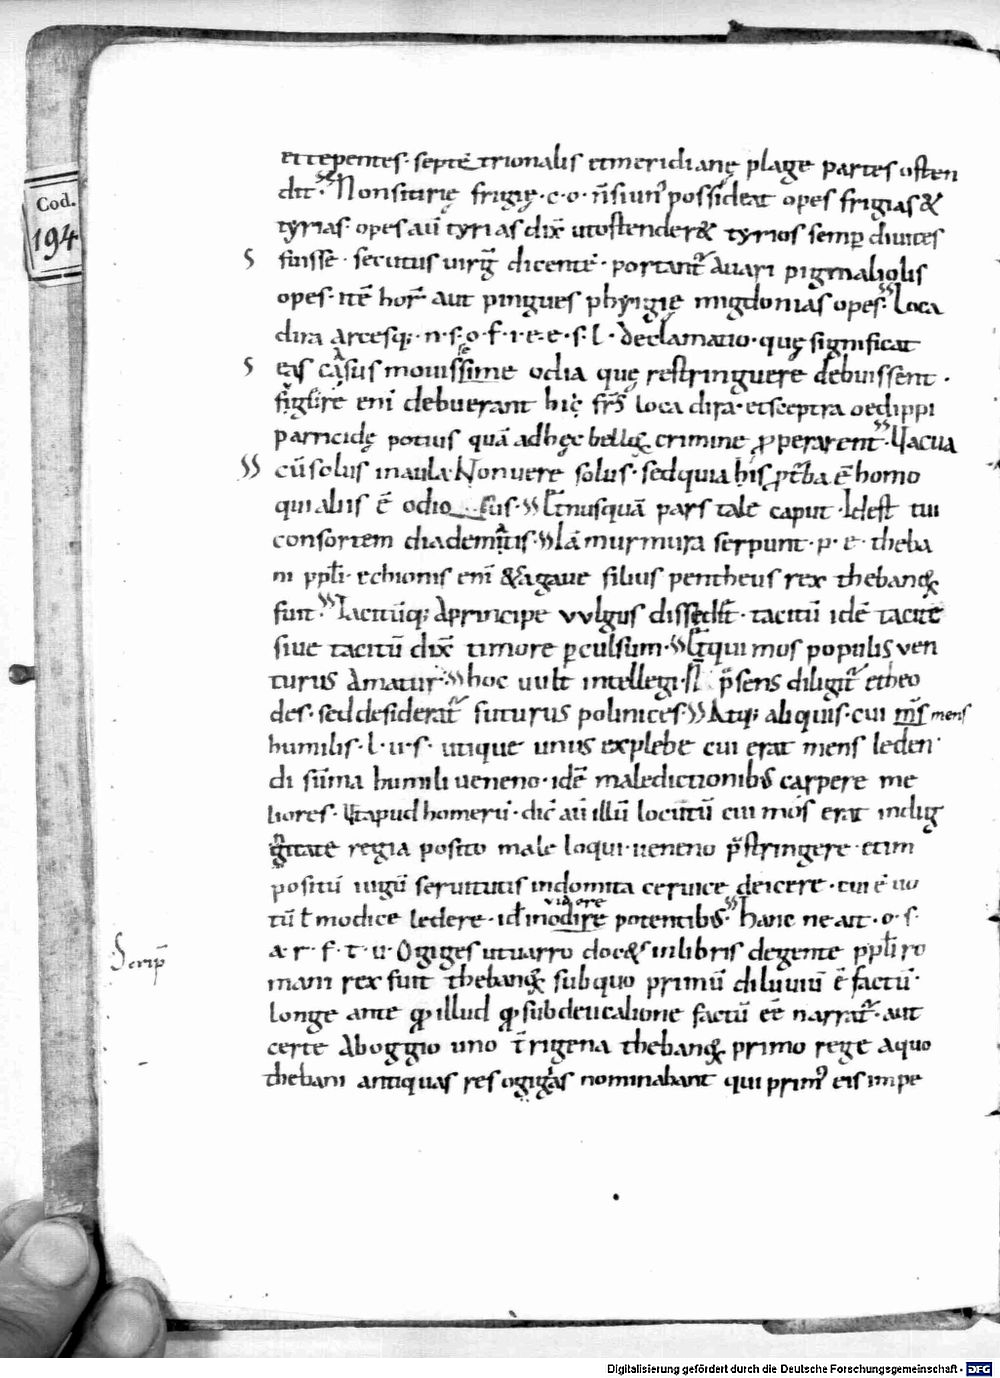 Cod.
194
et tepentes · septētrionalis et meridianę plage partes osten
dit · Non si tirię frigię · c · o · n̄ si unꝰ possideat opes frigias &
tyrias · opes aū tyrias dix̄ ut ostender& tyrios semp̄ divites
fuisse · secutus virḡ dicentē · portant᷑ avari pigmaliolis
opes · itē hor̄ · aut pingues phyrigię migdonias opes · Loca
dira arcesq; · n · s · o · f · i · e · e · s · l · declamatio · quę significat
eas casus movissime odia quę restringuere debuissent ·
enī debuerant hic fr̄s loca dira · et sceptra oedippi
parricidę potius quā adhęc bellicꝝ crimine ꝓperarent · Vacua
cū solus in aula · Non vere solus · sed quia his ꝓt̄ba ē homo
qui aliis ē odio sus · Et nusquā pars tale caput · Idest tui
consortem diadematis · Iā murmura serpunt · p · e · theba
ni ppl̄i · echionis enī & agaue filius pentheus rex thebanoꝝ
fuit · Tacitūq; a principe vvlgus dissed̄it · tacitū idē tacite
sive tacitū dix̄ timore ꝑculsum · Et qui mos populis ven
turus amatur · hoc vult intellegi · p̄sens diligit᷑ etheo
des · sed desiderat᷑ futurus polinices · Atq; aliquis · cui m̄s mens
humilis · l · u · s · utique unus ex plebe cui erat mens leden
di sūma humili veneno · idē maledictionibꝰ carpere me
liores · Et apud homerū · dic̄ aū illū locutū cui mos erat indig
nitate regia posito male loqui · veneno p̄stringere · et im
positū iugū servitutis indomita cervice deicere · cui ē uo
tū ł modice ledere · id ł in odire potentibꝰ · hanc ne ait · o · s ·
videre
a · r · f · t · u · Ogiges ut varro doc& in libris de gente ppl̄i ro
Scrip̄
mani rex fuit thebanoꝝ sub quo primū diluuiū ē factū ·
longe ante ꝙ illud ꝙ sub deucalione factū eē narrat᷑ · aut
certe ab oggio uno t̄rigena thebanoꝝ primo rege a quo
thebani antiquas res ogigias nominabant qui primꝰ eis impe
Digitalisierung gefördert durch die Deutsche Forschungsgemeinschaft - DFG